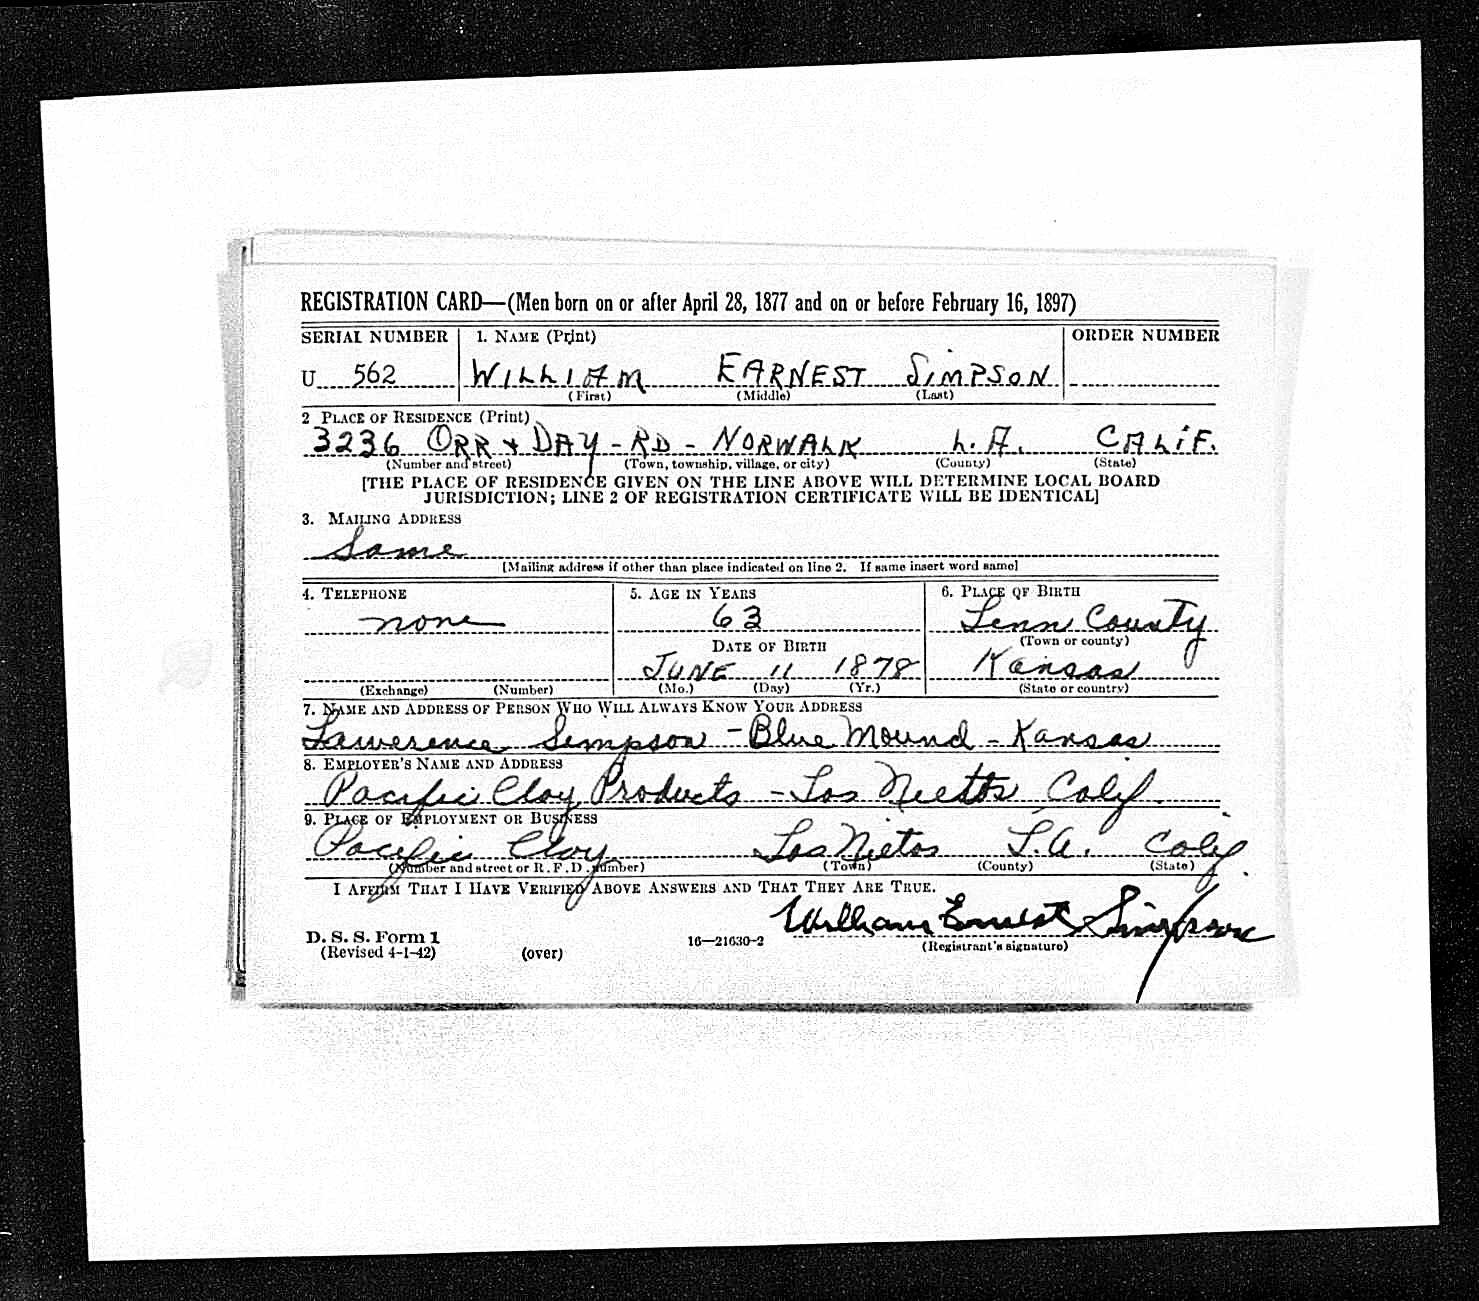 REGISTRATION CARD—(Men born on or after April 28, 1877 and on or before February 16, 1897)
SERIAL NUMBER 1. NAME (Print) ORDER NUMBER
U 562 WILLIAM EARNEST SIMPSON
(First) (Middle) (Last)
2 PLACE OF RESIDENCE (Print)
3236 ORR & DAY - RD - NORWALK L.A. CALIF.
(Number and street) (Town, township, village, or city) (County) (State)
[THE PLACE OF RESIDENCE GIVEN ON THE LINE ABOVE WILL DETERMINE LOCAL BOARD
JURISDICTION; LINE 2 OF REGISTRATION CERTIFICATE WILL BE IDENTICAL]
3. MAILING ADDRESS
Same
[Mailing address if other than place indicated on line 2. If same insert word same]
4. TELEPHONE 5. AGE IN YEARS 6. PLACE OF BIRTH
none 63 Linn County
DATE OF BIRTH (Town or county)
JUNE 11 1878 Kansas
(Exchange) (Number) (Mo.) (Day) (Yr.) (State or country)
7. NAME AND ADDRESS OF PERSON WHO WILL ALWAYS KNOW YOUR ADDRESS
Lawerence Simpson - Blue Mound - Kansas
8. EMPLOYER'S NAME AND ADDRESS
Pacific Clay Products - Los Nietos Calif.
9. PLACE OF EMPLOYMENT OR BUSINESS
Pacific Clay Los Nietos L.A. Calif.
(Number and street or R. F. D. number) (Town) (County) (State)
I AFFIRM THAT I HAVE VERIFIED ABOVE ANSWERS AND THAT THEY ARE TRUE.
William Ernest Simpson
D. S. S. Form 1 16—21630-2 (Registrant's signature)
(Revised 4-1-42) (over)